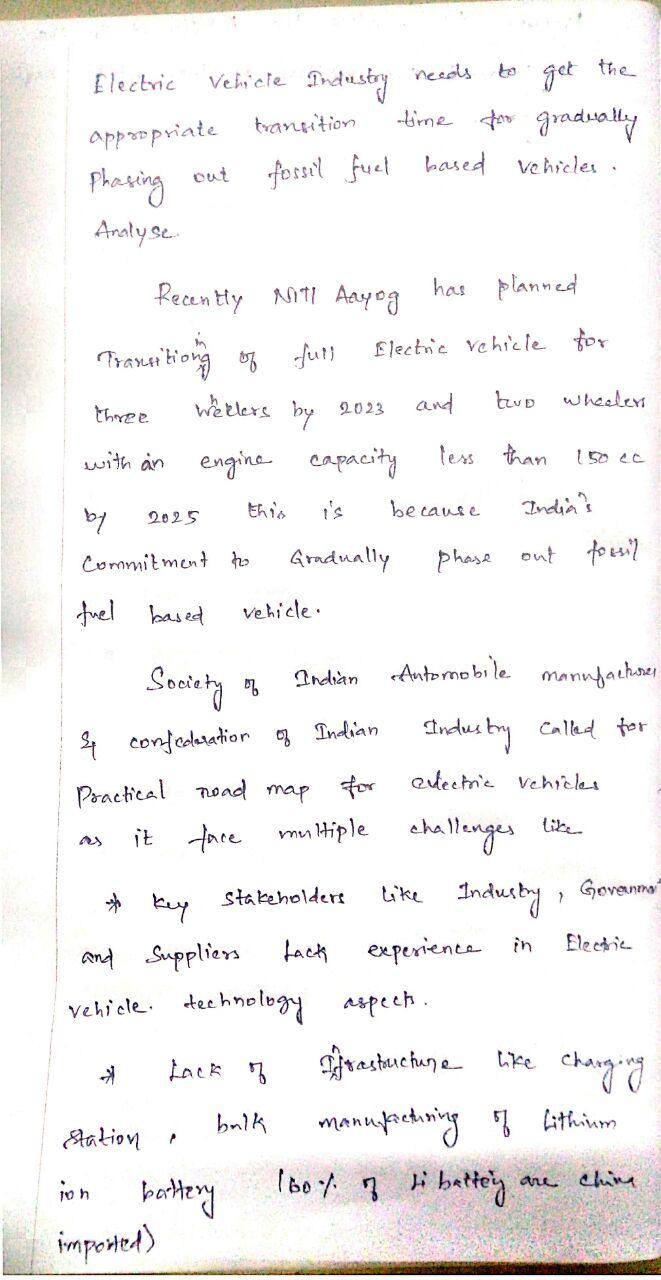 Electric Vehicle Industry needs to get the
appropriate transition time for gradually
Phasing out fossil fuel based vehicles.
Analyse.
Recently NITI Aayog has planned
Transitioning of full Electric vehicle for
three wheelers by 2023 and two wheelers
with an engine capacity less than 150 cc
by 2025 this is because India's
Commitment to Gradually phase out fossil
fuel based vehicle.
Society of Indian Automobile manufacturer
& confederation of Indian Industry called for
Practical road map for electric vehicles
as it face multiple challenges like
* Key stakeholders like Industry, Government
and Suppliers lack experience in Electric
vehicle. technology aspect.
* Lack of Infrastucture like charging
Station, bulk manufacturing of Lithium
ion battery (100% of Li battery are china
imported)